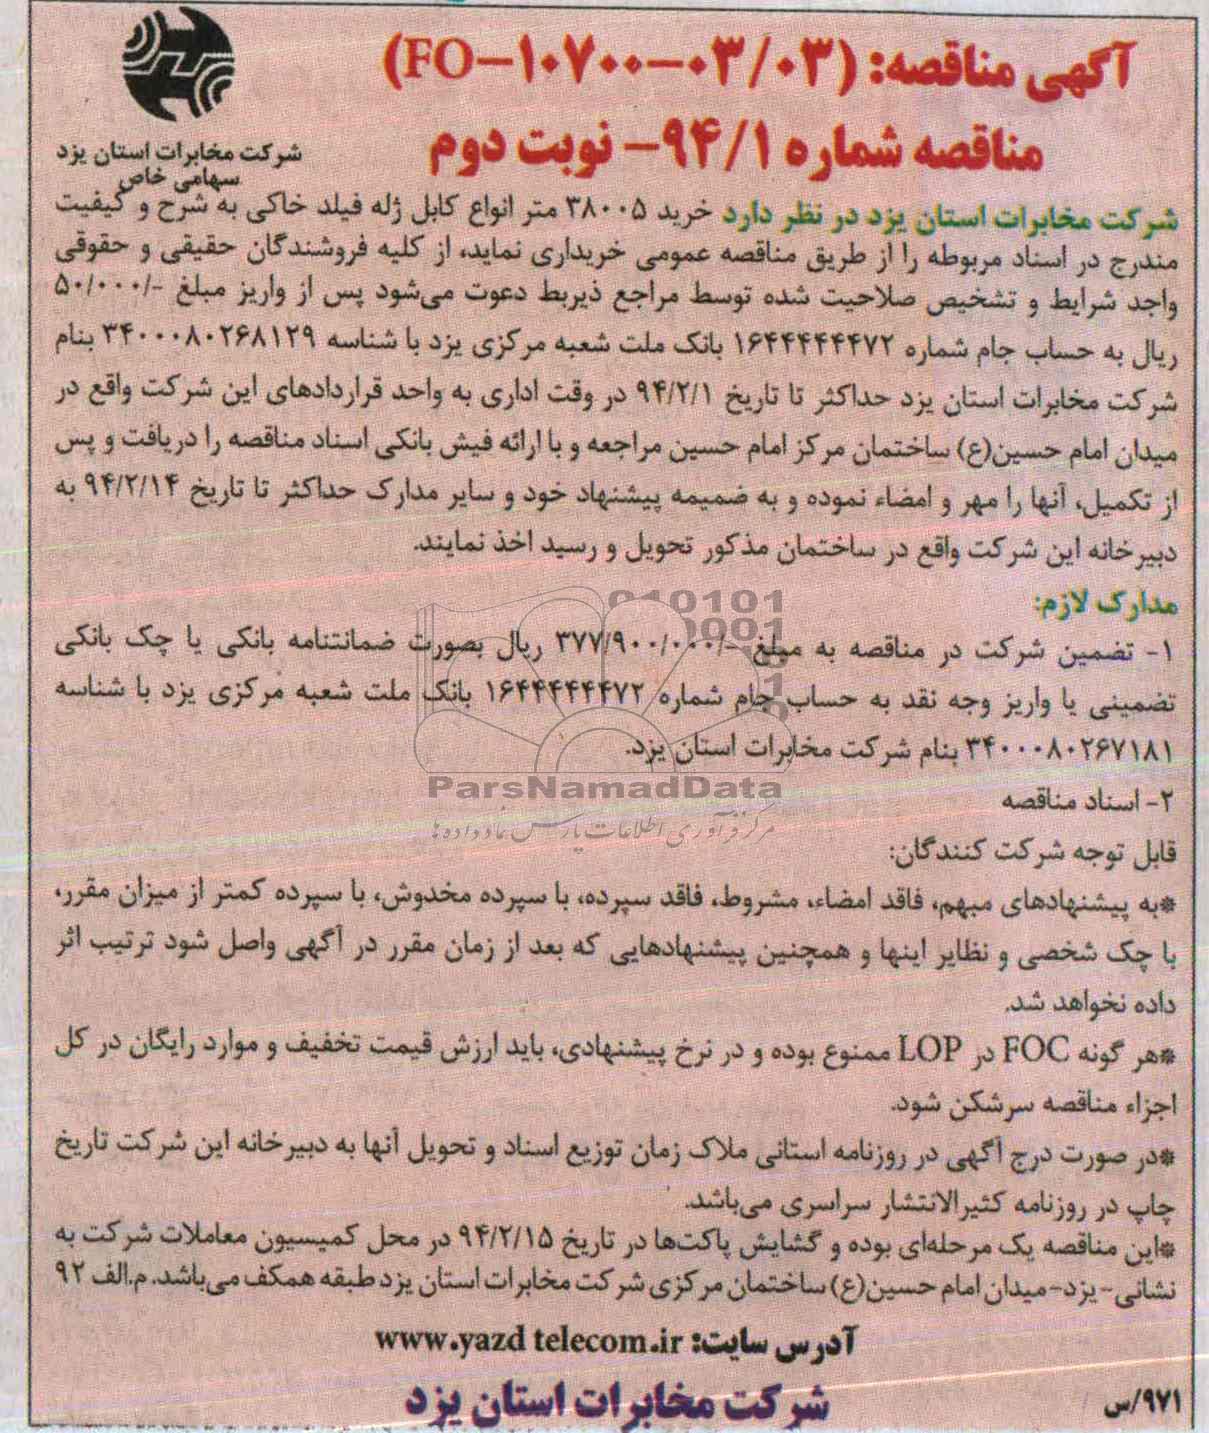 آگهی مناقصه: (FO-۱۰۷۰۰-۰۳/۰۳)
مناقصه شماره ۹۴/۱- نوبت دوم
شرکت مخابرات استان یزد
سهامی خاص
شرکت مخابرات استان یزد در نظر دارد خرید ۳۸۰۰۵ متر انواع کابل ژله فیلد خاکی به شرح و کیفیت
مندرج در اسناد مربوطه را از طریق مناقصه عمومی خریداری نماید، از کلیه فروشندگان حقیقی و حقوقی
واجد شرایط و تشخیص صلاحیت شده توسط مراجع ذیربط دعوت می‌شود پس از واریز مبلغ -/۵۰/۰۰۰
ریال به حساب جام شماره ۱۶۴۴۴۴۴۴۷۲ بانک ملت شعبه مرکزی یزد با شناسه ۳۴۰۰۰۸۰۲۶۸۱۲۹ بنام
شرکت مخابرات استان یزد حداکثر تا تاریخ ۹۴/۲/۱ در وقت اداری به واحد قراردادهای این شرکت واقع در
میدان امام حسین(ع) ساختمان مرکز امام حسین مراجعه و با ارائه فیش بانکی اسناد مناقصه را دریافت و پس
از تکمیل، آنها را مهر و امضاء نموده و به ضمیمه پیشنهاد خود و سایر مدارک حداکثر تا تاریخ ۹۴/۲/۱۴ به
دبیرخانه این شرکت واقع در ساختمان مذکور تحویل و رسید اخذ نمایند.
مدارک لازم:
۱- تضمین شرکت در مناقصه به مبلغ -/۳۷۷/۹۰۰/۰۰۰ ریال بصورت ضمانتنامه بانکی یا چک بانکی
تضمینی یا واریز وجه نقد به حساب جام شماره ۱۶۴۴۴۴۴۴۷۲ بانک ملت شعبه مرکزی یزد با شناسه
۳۴۰۰۰۸۰۲۶۷۱۸۱ بنام شرکت مخابرات استان یزد.
ParsNamadData
۲- اسناد مناقصه
مرکز فرآوری اطلاعات پارس نماد داده ها
قابل توجه شرکت کنندگان:
*به پیشنهادهای مبهم، فاقد امضاء، مشروط، فاقد سپرده، با سپرده مخدوش، با سپرده کمتر از میزان مقرر،
با چک شخصی و نظایر اینها و همچنین پیشنهادهایی که بعد از زمان مقرر در آگهی واصل شود ترتیب اثر
داده نخواهد شد.
*هر گونه FOC در LOP ممنوع بوده و در نرخ پیشنهادی، باید ارزش قیمت تخفیف و موارد رایگان در کل
اجزاء مناقصه سرشکن شود.
*در صورت درج آگهی در روزنامه استانی ملاک زمان توزیع اسناد و تحویل آنها به دبیرخانه این شرکت تاریخ
چاپ در روزنامه کثیرالانتشار سراسری می‌باشد.
*این مناقصه یک مرحله‌ای بوده و گشایش پاکت‌ها در تاریخ ۹۴/۲/۱۵ در محل کمیسیون معاملات شرکت به
نشانی- یزد- میدان امام حسین(ع) ساختمان مرکزی شرکت مخابرات استان یزد طبقه همکف می‌باشد. م.الف ۹۲
آدرس سایت: www.yazd telecom.ir
شرکت مخابرات استان یزد
۹۷۱/س